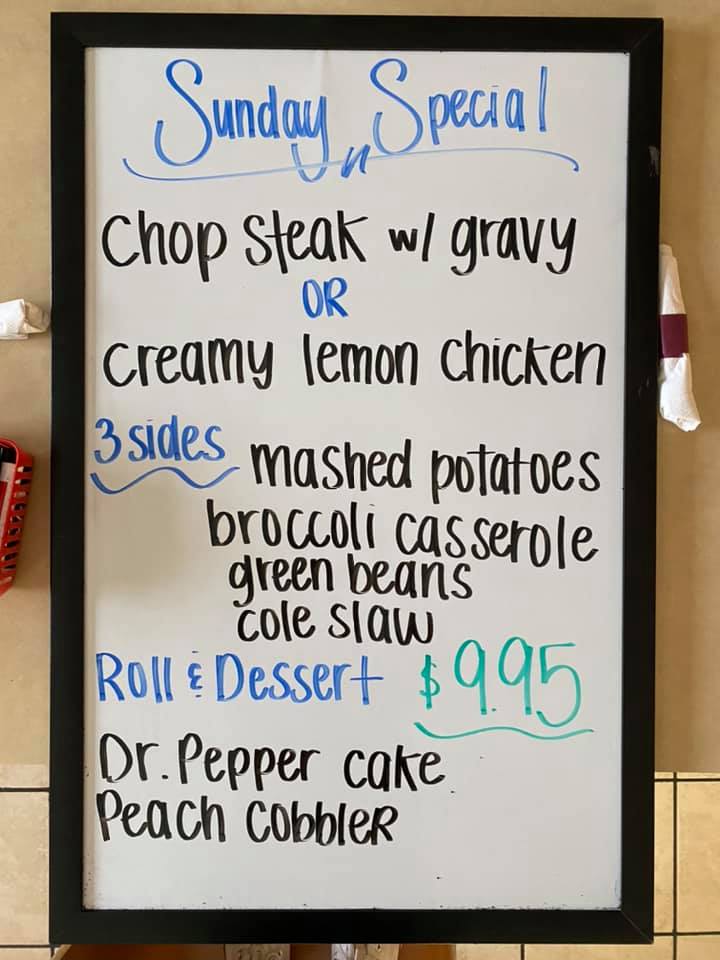 Sunday Special
Chop Steak w/ gravy
OR
Creamy lemon Chicken
3 sides mashed potatoes
broccoli casserole
green beans
cole slaw
Roll & Dessert $9.95
Dr. Pepper cake
Peach CobbleR